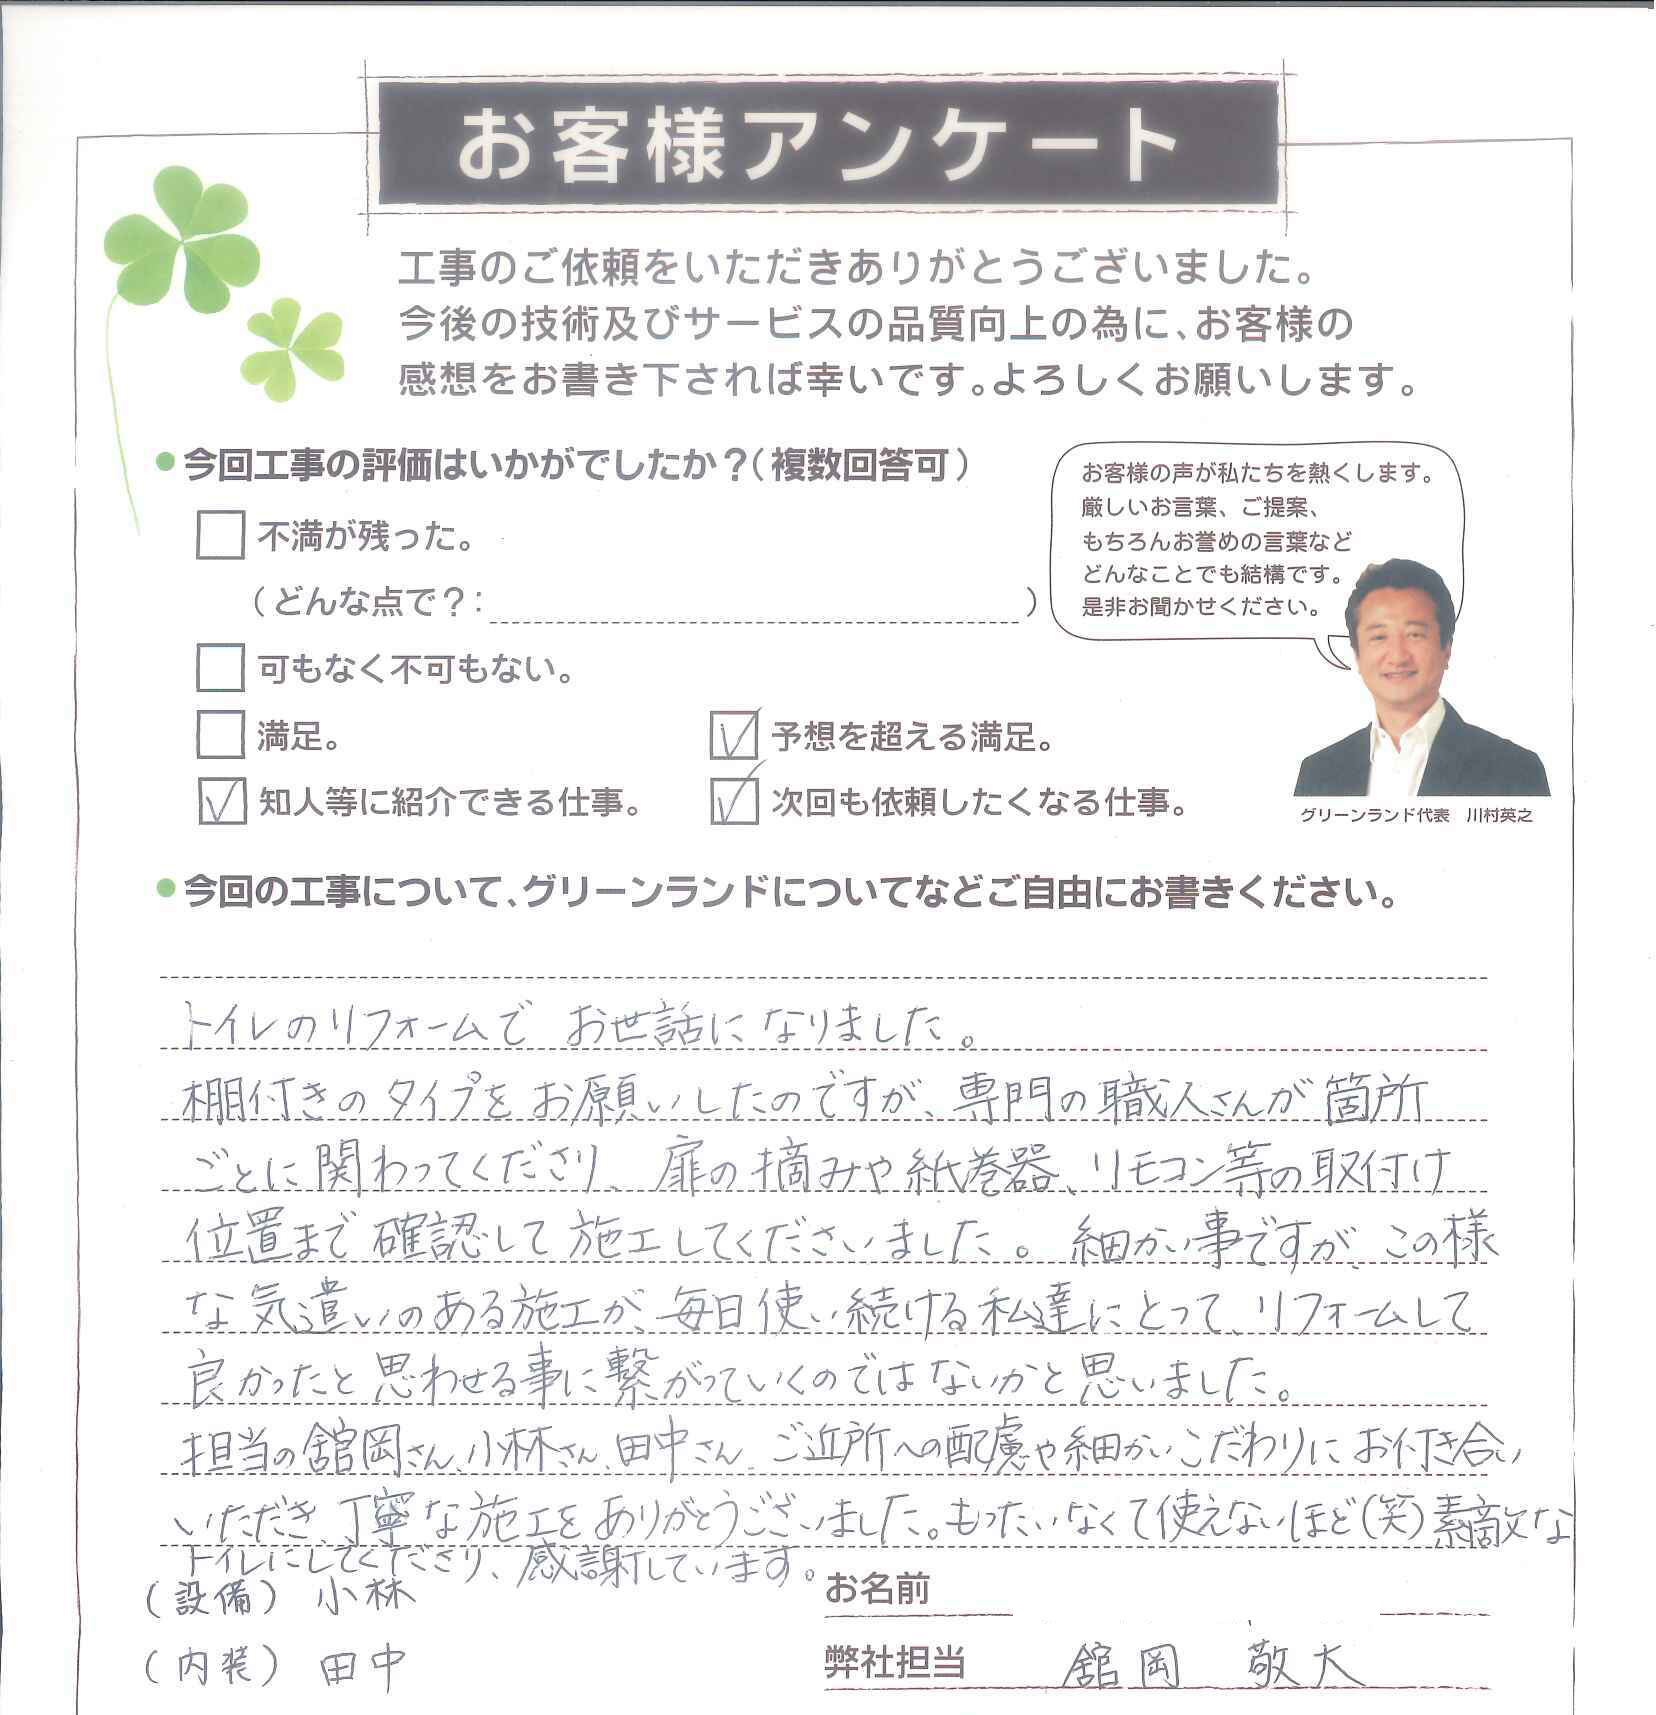 お客様アンケート
工事のご依頼をいただきありがとうございました。
今後の技術及びサービスの品質向上の為に、お客様の
感想をお書き下されば幸いです。よろしくお願いします。
今回工事の評価はいかがでしたか？（複数回答可）
不満が残った。
（どんな点で？： ）
可もなく不可もない。
満足。
予想を超える満足。
知人等に紹介できる仕事。
次回も依頼したくなる仕事。
お客様の声が私たちを熱くします。
厳しいお言葉、ご提案、
もちろんお誉めの言葉など
どんなことでも結構です。
是非お聞かせください。
グリーンランド代表 川村英之
今回の工事について、グリーンランドについてなどご自由にお書きください。
トイレのリフォームで お世話になりました。
棚付きのタイプをお願いしたのですが、専門の職人さんが箇所
ごとに関わってくださり、扉の摘みや紙巻器、リモコン等の取付け
位置まで確認して施工してくださいました。細かい事ですが、この様
な気遣いのある施工が、毎日使い続ける私達にとって、リフォームして
良かったと思わせる事に繋がっていくのではないかと思いました。
担当の舘岡さん、小林さん、田中さん、ご近所への配慮や細かいこだわりにお付き合い
いただき、丁寧な施工をありがとうございました。もったいなくて使えないほど（笑）素敵な
トイレにしてくださり、感謝しています。
（設備） 小林
（内装） 田中
お名前
弊社担当 舘岡 敬大